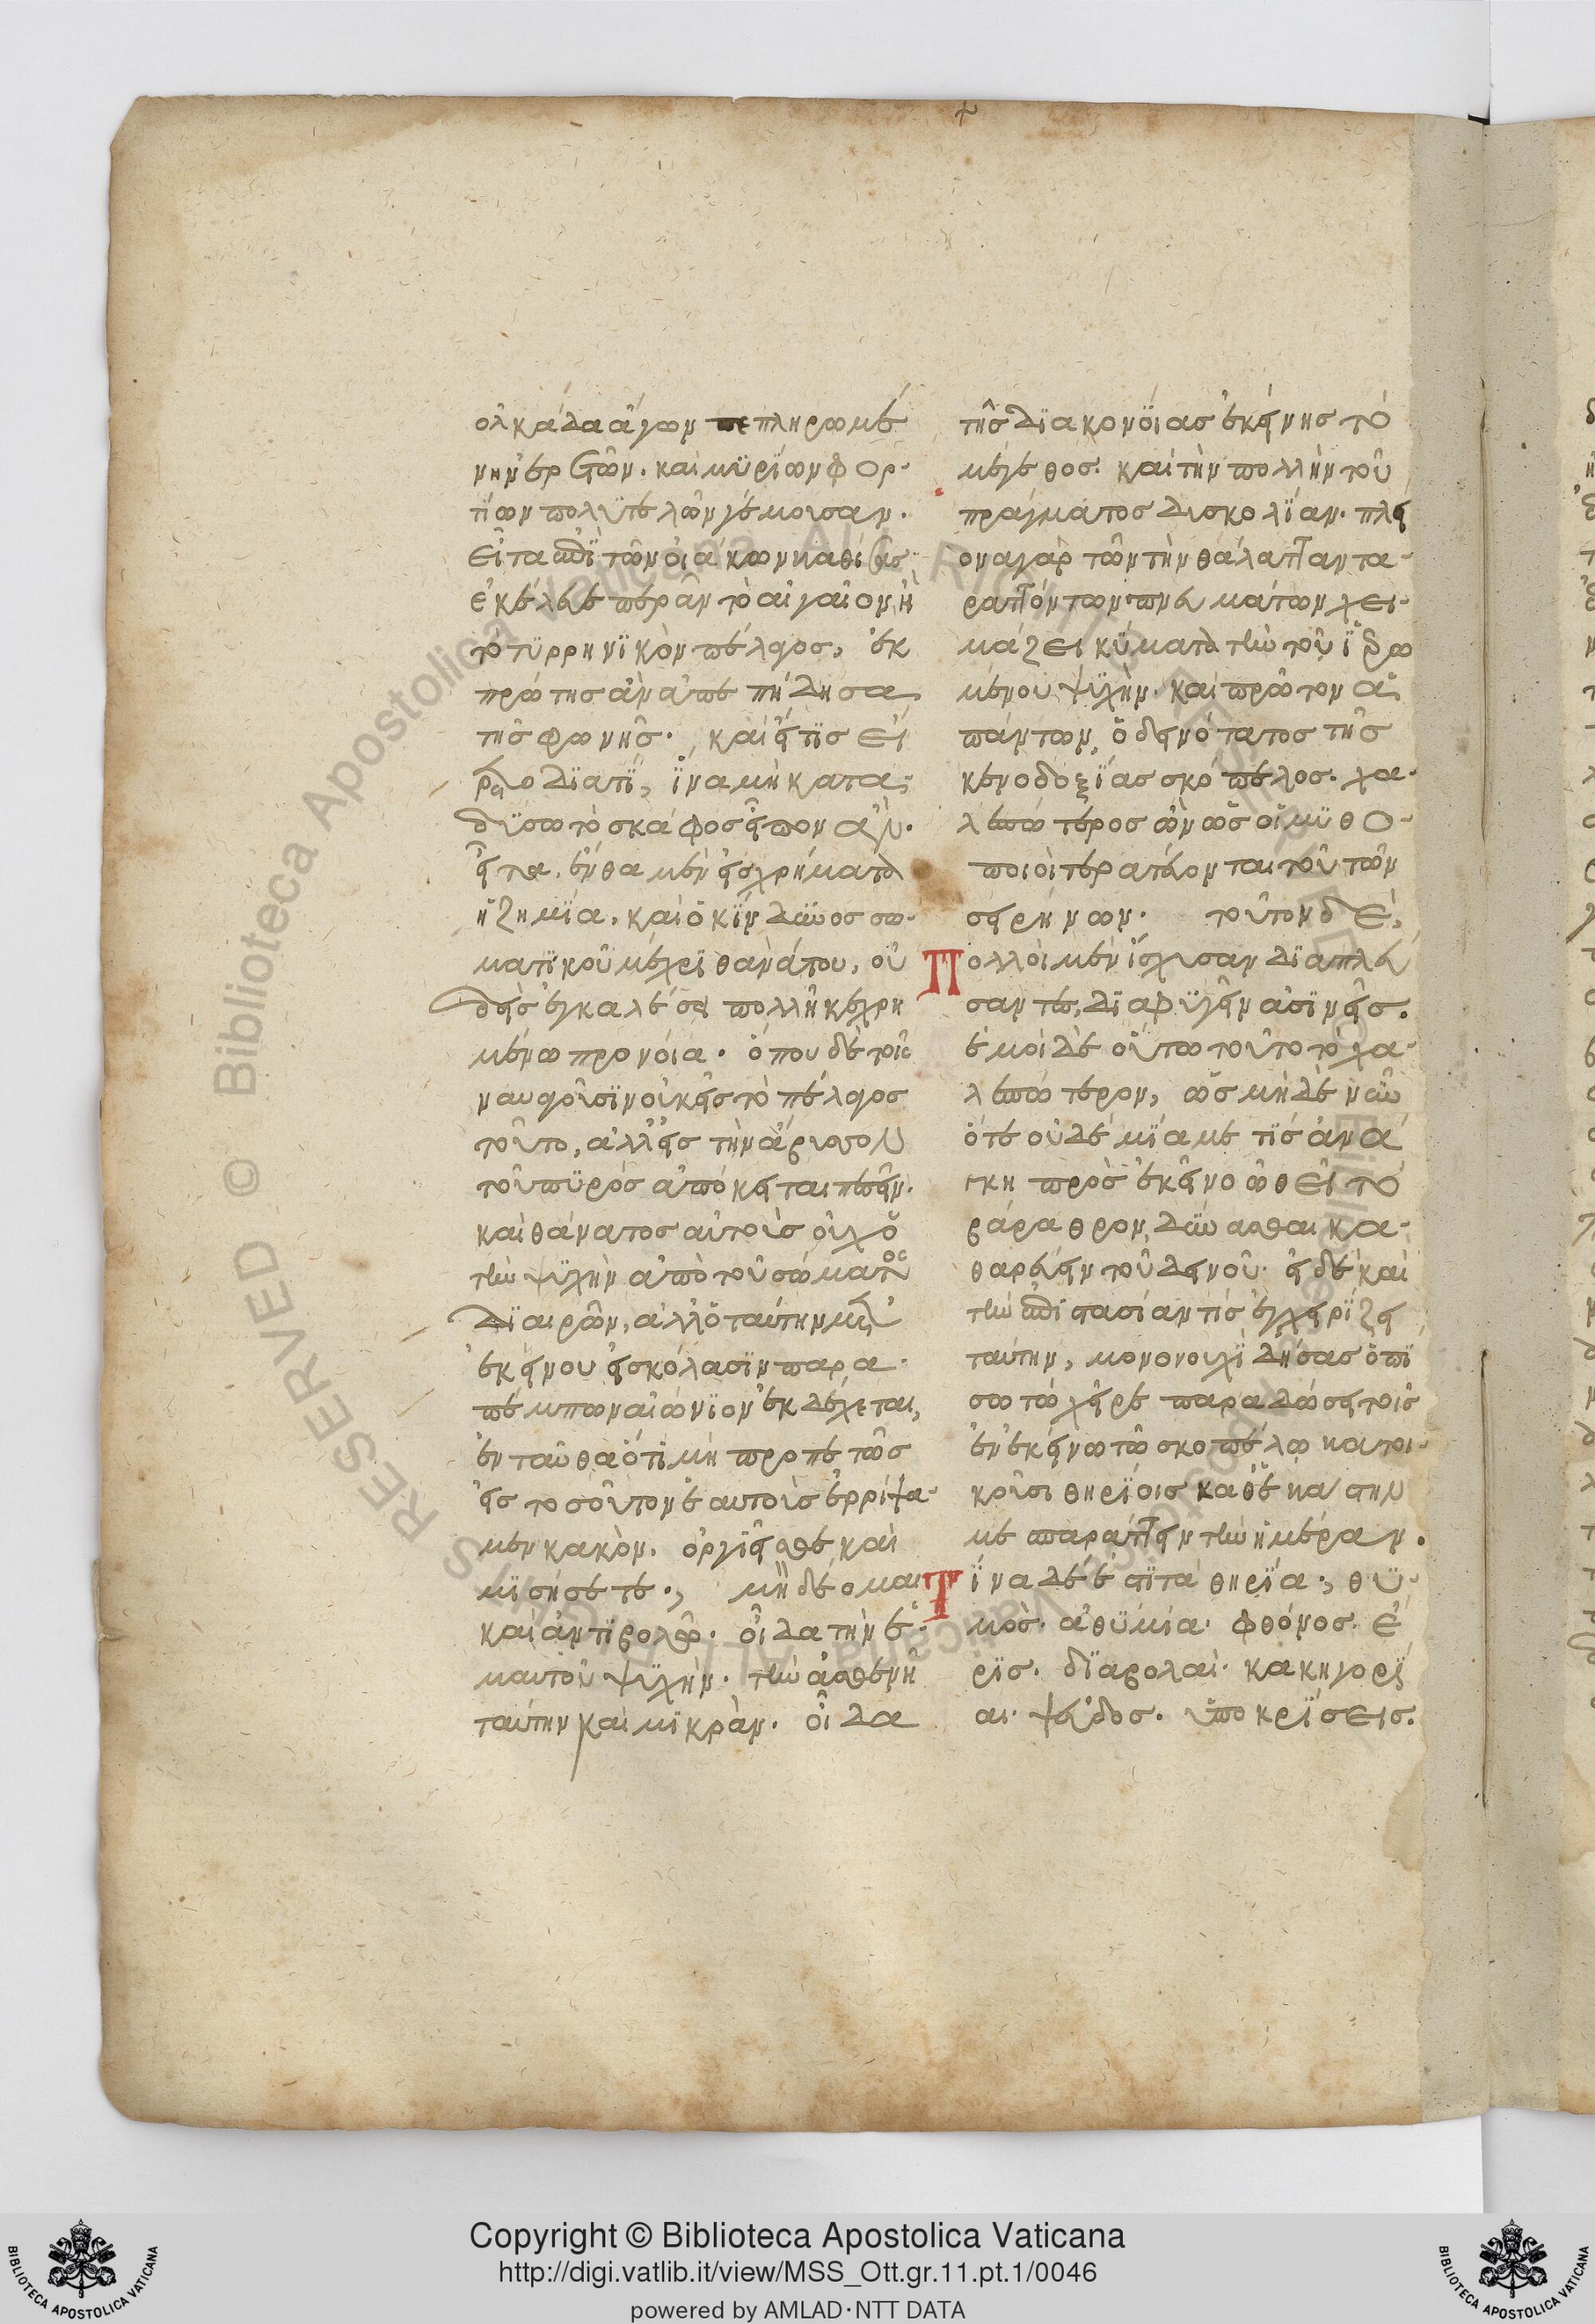 ὁλκάδα ἄγων πεπληρωμέ
νην ἐρετῶν. καὶ μυρίων φορ
τίων πολυτελῶν γέμουσαν.
εἶτα ἐπὶ τῶν οἰάκων καθίσας
ἐκέλευε περᾶν τὸ αἰγαῖον ἢ
τὸ τυρρηνικὸν πέλαγος, ἐκ
πρώτης ἂν ἀπεπήδησα
τῆς φωνῆς. καὶ εἴ τις εἴ
ρετο διατί, ἵνα μὴ κατα
δύσω τὸ σκάφος εἶπον ἄν.
εἶτα ἔνθα μὲν εἰς χρήματα
ἡ ζημία. καὶ ὁ κίνδυνος σω
ματικοῦ μέχρι θανάτου, οὐ
δεὶς ἐγκαλέσει πολλῇ κεχρη
μένω προνοία. ὅπου δὲ τοῖς
ναυαγοῦσιν οὐκ εἰς τὸ πέλαγος
τοῦτο, ἀλλ' εἰς τὴν ἄβυσσον
τοῦ πυρὸς ἀπόκειται πεσεῖν.
καὶ θάνατος αὐτοὺς οὐχ ὁ
τὴν ψυχὴν ἀπὸ τοῦ σώματος
διαιρῶν, ἀλλ' ὁ ταύτην μετ'
ἐκείνου εἰς κόλασιν παρα
πέμπων αἰώνιον ἐκδέχεται,
ἐνταῦθα ὅτι μὴ προπετῶς
εἰς τοσοῦτον ἑαυτοὺς ἐρρίψα
μεν κακὸν. ὀργιεῖσθε καὶ
μισήσετε., μὴ δέομαι
καὶ ἀντιβολῶ. οἶδα τὴν ἐ
μαυτοῦ ψυχὴν. τὴν ἀσθενῆ
ταύτην καὶ μικρὰν. οἶδα
τῆς διακονίας ἐκείνης τὸ
μέγεθος. καὶ τὴν πολλὴν τοῦ
πράγματος δυσκολίαν. πλεί
ονα γὰρ τῶν τὴν θάλατταν τα
ραττόντων πνευμάτων χει
μάζει κύματα τὴν τοῦ ἱερω
μένου ψυχὴν. καὶ πρῶτον ἁ
πάντων, ὁ δεινότατος τῆς
κενοδοξίας σκόπελος. χα
λεπώτερος ὢν ὡς οἱ μυθο
ποιοὶ τερατεύονται τοῦ τῶν
σειρήνων. τοῦτον δὲ,
Πολλοὶ μὲν ἴσχυσαν διαπλεύ
σαντες, διαφυγεῖν ἀσινεῖς.
ἐμοὶ δὲ οὕτω τοῦτο τὸ χα
λεπώτερον, ὡς μηδὲ νῦν
ὅτε οὐδεμία με τίς ἀνά
γκη πρὸς ἐκεῖνο ὠθεῖ τὸ
βάραθρον, δύνασθαι κα
θαρεύειν τοῦ δεινοῦ. εἰ δὲ καὶ
τὴν ἐπιστασίαν τίς ἐγχειρίζει
ταύτην, μονονουχὶ δήσας ὀπί
σω τὼ χεῖρε παραδώσει τοῖς
ἐν ἐκείνω τῶ σκοπέλω κατοι
κοῦσι θηρίοις καθ' ἑκάστην
με σπαράττειν τὴν ἡμέραν.
Τίνα δέ ἐστι τὰ θηρία; θυ
μὸς. ἀθυμία. φθόνος. ἔ
ρις. διαβολαὶ. κακηγορί
αι. ψεῦδος. ὑποκρίσεις.
Copyright © Biblioteca Apostolica Vaticana
http://digi.vatlib.it/view/MSS_Ott.gr.11.pt.1/0046
powered by AMLAD·NTT DATA